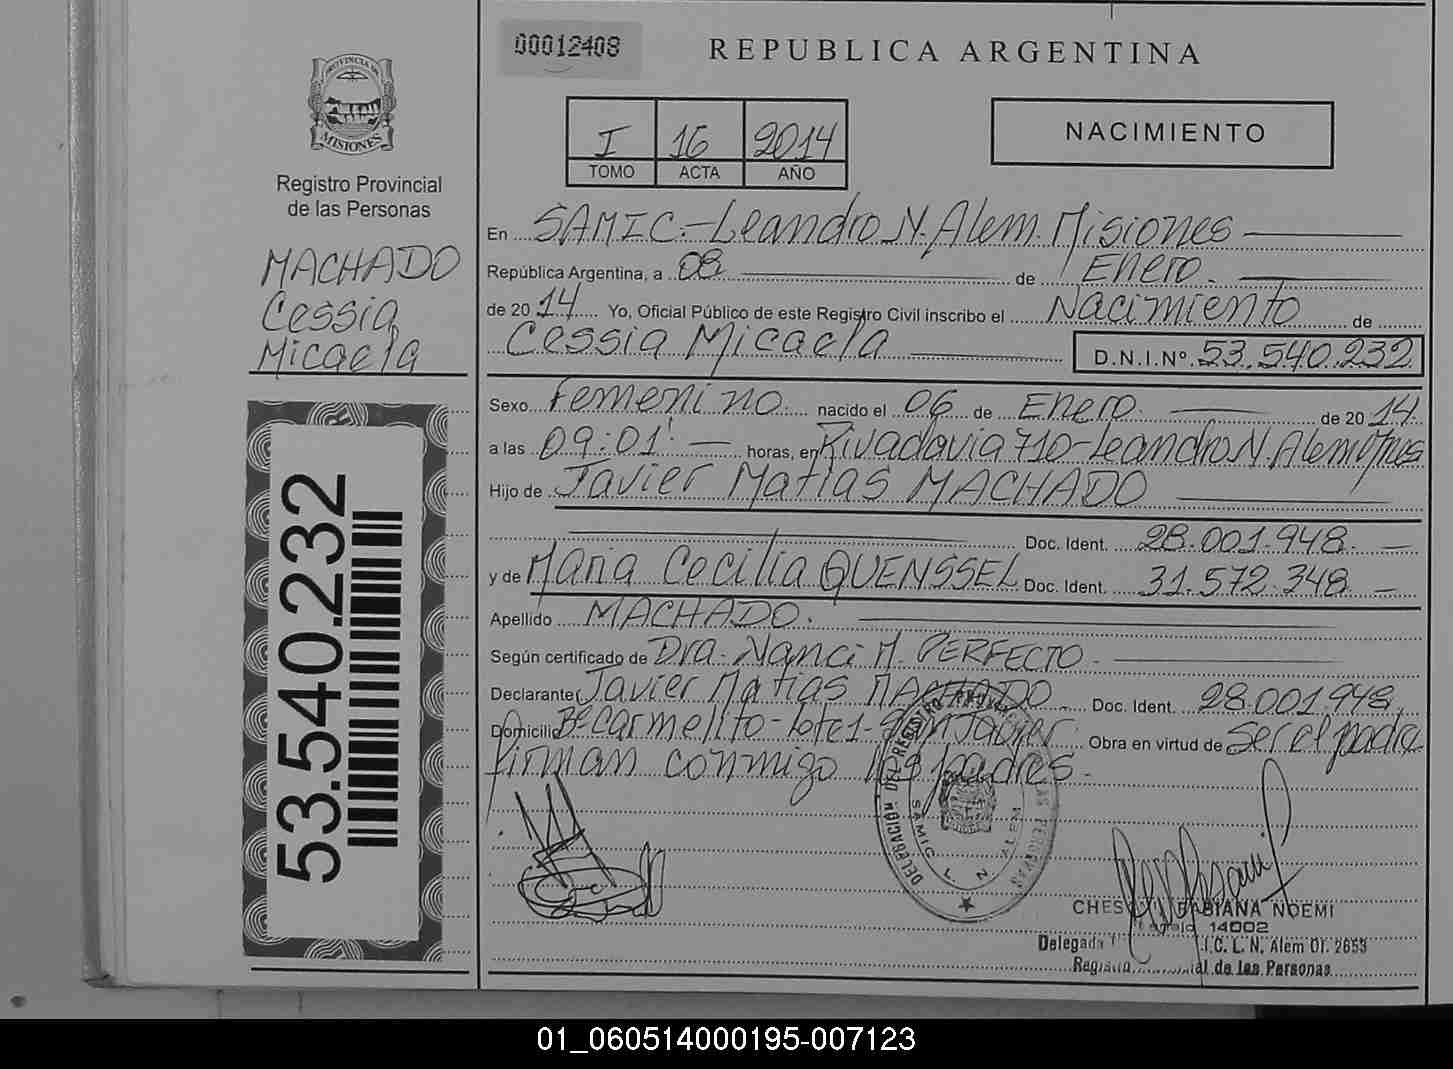 00012408
REPUBLICA ARGENTINA
PROVINCIA DE
MISIONES
Registro Provincial
de las Personas
I 16 2014
TOMO ACTA AÑO
NACIMIENTO
MACHADO
Cessia
Micaela
En SAMIC.-Leandro N. Alem. Misiones
República Argentina, a 08 de Enero.
de 2014 Yo, Oficial Público de este Registro Civil inscribo el Nacimiento de
Cessia Micaela D.N.I.Nº. 53.540.232
Sexo Femenino nacido el 06 de Enero. de 2014.
a las 09:01' horas, en Rivadavia 710-Leandro N. Alem Mnes
Hijo de Javier Matias MACHADO
Doc. Ident. 28.001.948.
y de Maria Cecilia QUENSSEL Doc. Ident. 31.572.348
Apellido MACHADO.
Según certificado de Dra. Nanci M. PERFECTO.
Declarante Javier Matias MACHADO Doc. Ident. 28.001.948.
Domicilio Bº Carmelito-Lote 1-San Javier Obra en virtud de Ser el padre
Firman conmigo los padres.
53.540.232
DELEGACIÓN DEL REGISTRO PROVINCIAL DE LAS PERSONAS
SAMIC L N ALEM
FABIANA NOEMI
14002
Delegada I.C. L. N. Alem Of. 2653
de las Personas
01_060514000195-007123